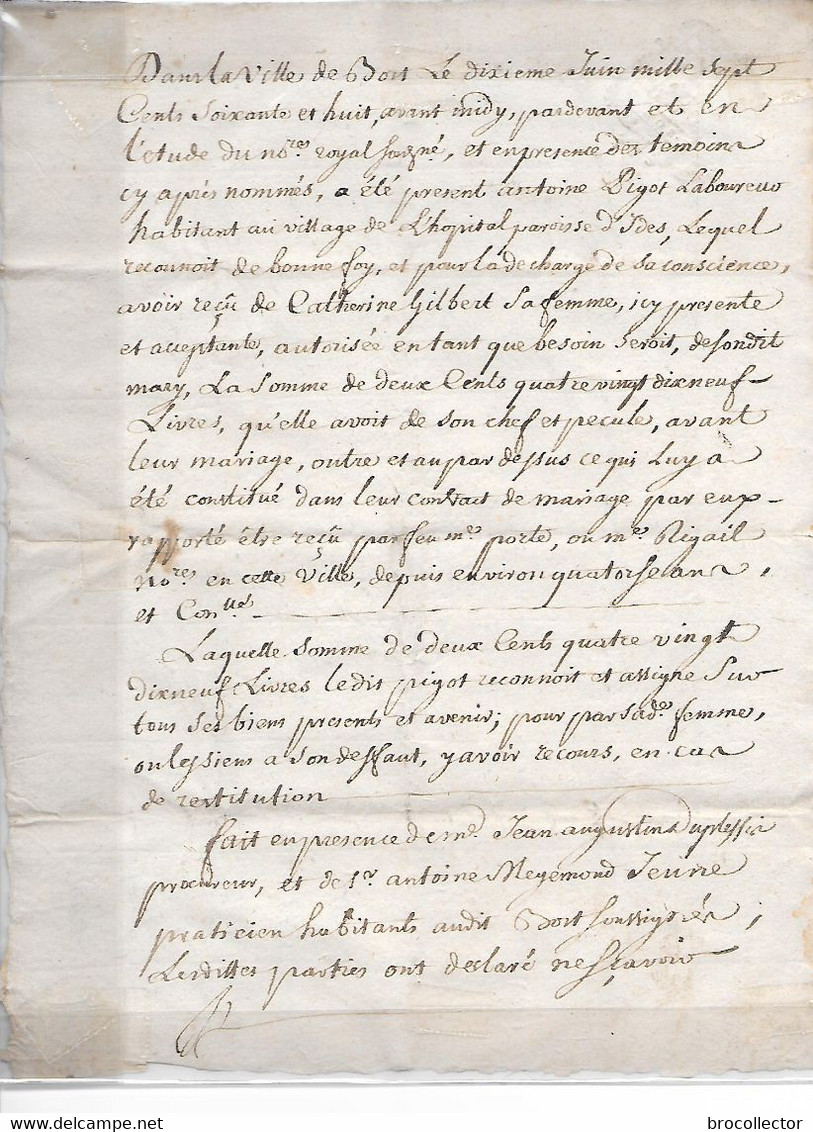 Dans la Ville de Bort Le dixieme Juin mille sept
Cents soixante et huit, avant midy, pardevant et en
l'etude du no.res royal sousigné, et en presence des temoins
cy aprés nommés, a été present antoine Pigot Laboureur
habitant au village de L'hopital paroisse d'Ydes, Lequel
reconnoit de bonne foy, et pour la decharge de sa conscience,
avoir reçû de Catherine Gilbert sa femme, icy presente
et acceptante, autorisée en tant que besoin seroit, desondit
mary, La somme de deux Cents quatre vingt dixneuf
Livres, qu'elle avoit de son chef et pecule, avant
leur mariage, outre et au par dessus ce qui Luy a
été constitué dans leur contrat de mariage par eux
rapporté être reçû par feu me porte, ou me Rigail
no.res en cette Ville, depuis environ quatorse ans,
et Con.llé
Laquelle somme de deux Cents quatre vingt
dixneuf Livres ledit pigot reconnoit et assigne sur
tous ses biens presents et avenir; pour par sad.e femme,
ou les siens a son deffaut, y avoir recours, en cas
de restitution
fait en presence de me. Jean augustin Duplessis
procureur, et de Sr. antoine Meyemond Jeune
praticien habitants audit Bort soussignés,
Lesdittes parties ont declaré ne sçavoir
www.delcampe.net
brocollector